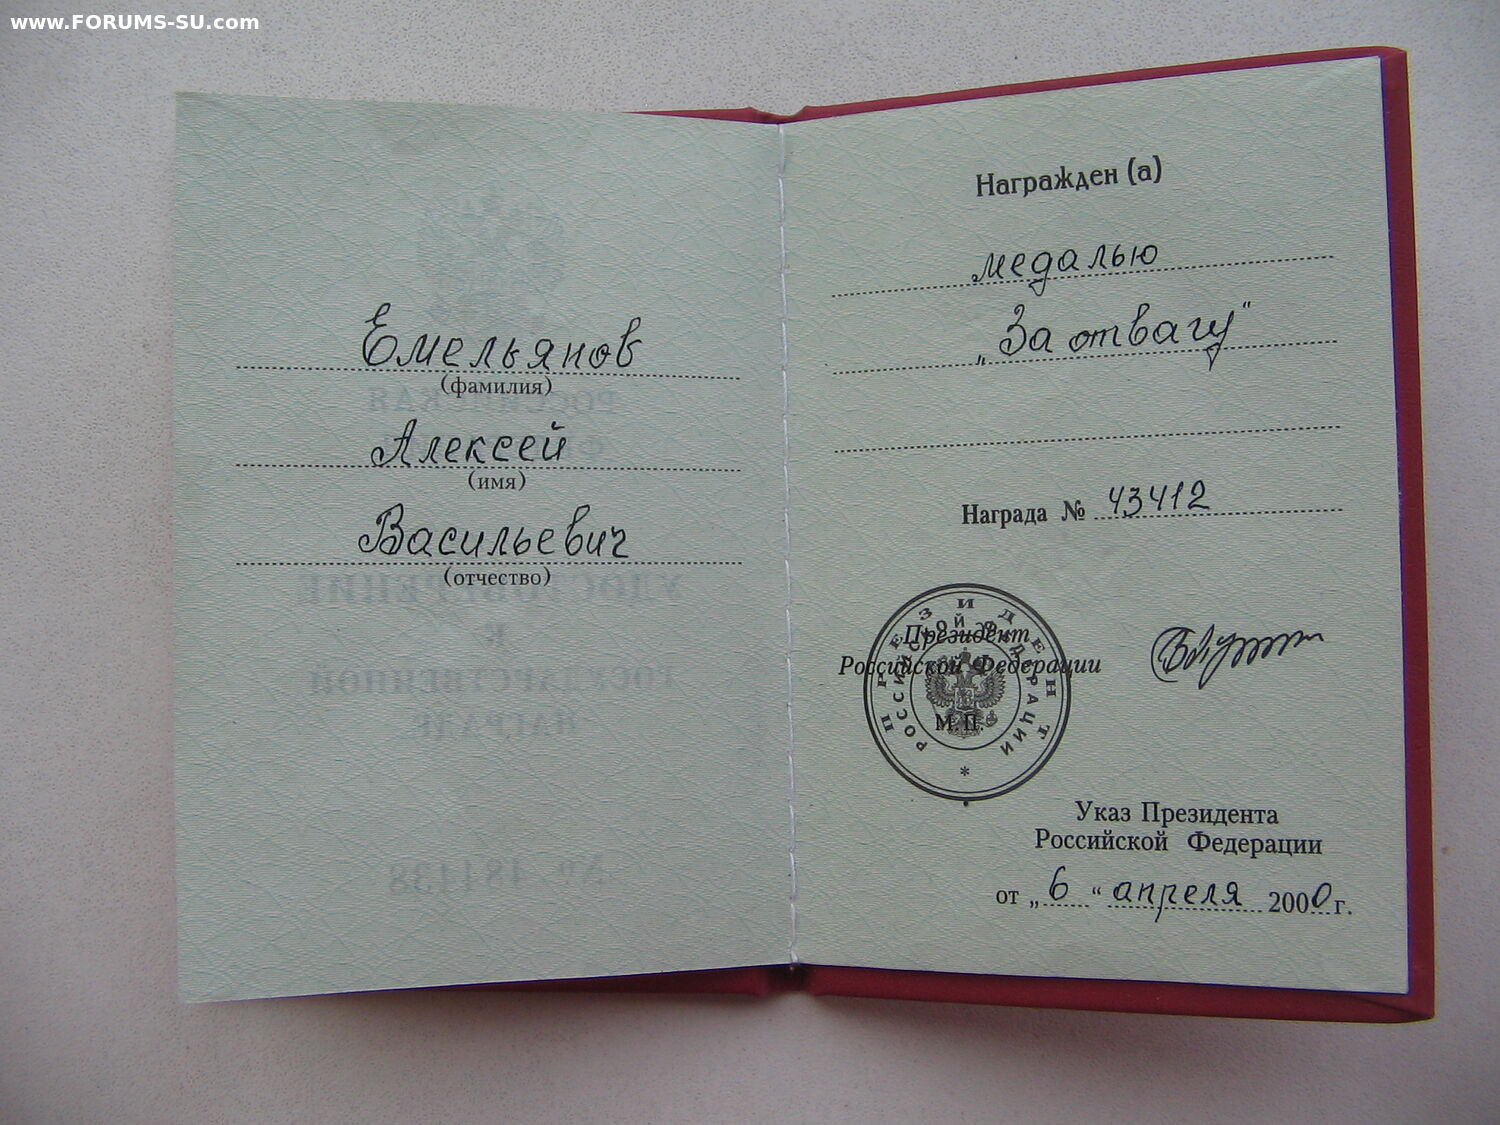 www.FORUMS-SU.com
Емельянов
(фамилия)
Алексей
(имя)
Васильевич
(отчество)
Награжден (а)
медалью
„За отвагу"
Награда № 43412
Президент
Российской Федерации
М.П.
ПРЕЗИДЕНТ
РОССИЙСКОЙ ФЕДЕРАЦИИ
*
Указ Президента
Российской Федерации
от „6“ апреля 2000г.